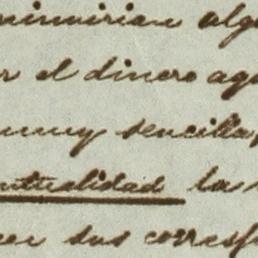 minirian alg
r el dinero ag
muy sencilla,
ntualidad la
cer sus corresp